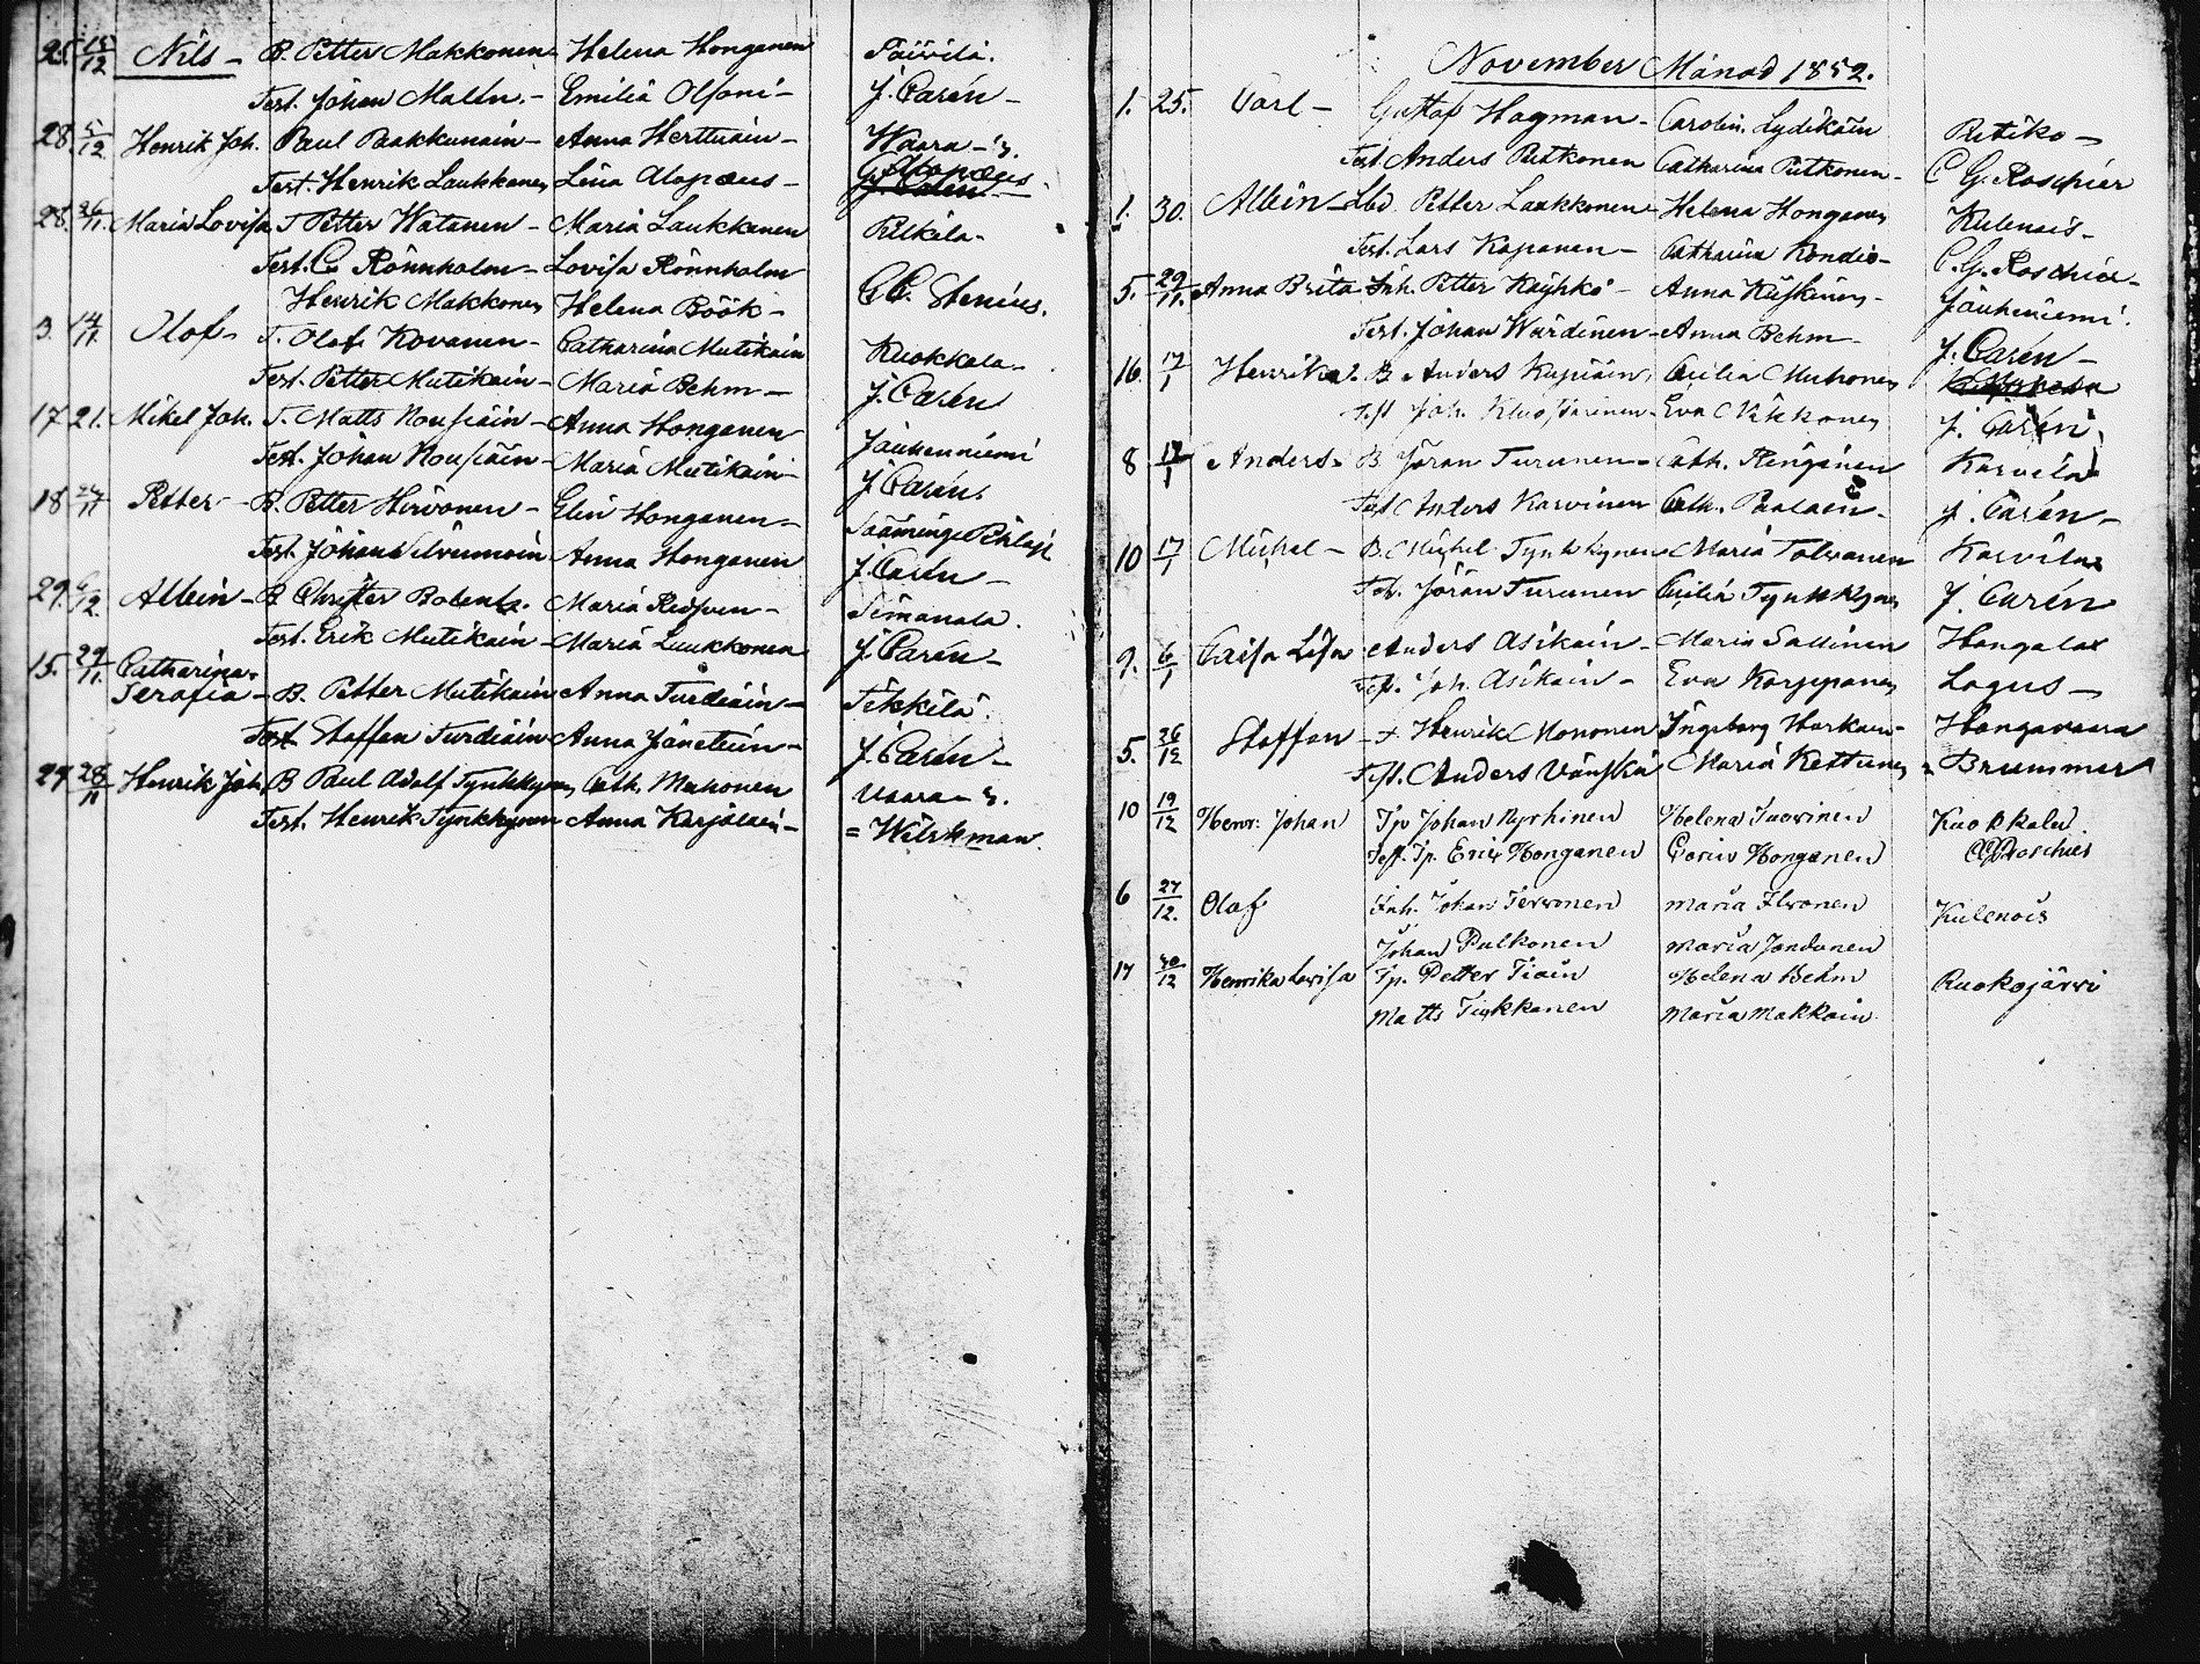 25. 15/12 Nils - B. Petter Makkonen Helena Honganen Päivilä.
Test. Johan Malin. - Emilia Olsoni - J. Carén -
28. 5/12 Henrik Joh. Paul Paakkunain - Anna Herttuain - Waara - 3.
Test. Henrik Laukkanen Lena Alopæus - Alopæus
28. 26/11. Maria Lovisa T. Petter Watanen - Maria Laukkanen Pitkälä -
Test. C. Rönnholm - Lovisa Rönnholm
Henrik Makkonen Helena Böök - Stenius.
3. 14/11. Olof - T. Olof Kovanen - Catharina Mutikain Kuokkala -
Test. Petter Mutikain - Maria Behm - J. Carén
17 21. Mikel Joh. T. Matts Nousiain - Anna Honganen Jauhenniemi
Test. Johan Nousiäin - Maria Mutikain - J. Carén
18 /11 Petter - B. Petter Hirvonen - Elin Honganen - Sääminge
Test. Johan Anna Honganen J. Carén -
29. 6/12 Albin - B Christer Maria - Simanala.
Test. Erik Mutikain - Maria Luukkonen J. Carén -
15. 29/11. Catharina
Serafia - B. Petter Mutikain Anna Turdiain - Tikkilä.
Test Staffan Turdiäin Anna Jänetiin - J. Carén -
27. 28/11 Henrik Joh. B Paul Adolf Tynkkynen Cath. Muhonen Uaara - 3.
Test. Henrik Tynkkynen Anna Karjalain - = Wirkman.
November Månad 1852.
1. 25. Carl - Gustaf Hagman - Carolin. Lydikäin Putiko -
Test Anders Putkonen Catharina Putkonen - C G. Roschier
1. 30. Albin - Lbd. Petter Laukkonen - Helena Honganen Kulenois -
Test. Lars Kaponen - Catharina Kondie - C. G. Roschier -
5. 29/11. Anna Brita Inh. Petter Käyhkö - Anna Kiiskinen - Jauheniemi.
Test. Johan Wardinen - Anna Behm - J. Carén -
16. 17/1 Henrika B. Anders Kupiain, Cecilia Muhonen
Test Joh. Eva Nikkonen J. Carén.
8 17/1 Anders - B. Jöran Turunen - Cath. Karvila
Test Anders Karvinen Cath. Paalain - J. Carén -
10 17/1 Michel - B. Michel Tynkkynen Maria Tolvanen Karvila
Test. Jöran Turunen Cecilia Tynkkynen J. Carén
9. 6/1 Caisa Lisa Anders Asikain - Maria Sallinen Hongalax
Test. Joh. Asikain - Eva Korppanen Lagus -
5. 26/12 Staffan - T. Henrik Mononen Ingeborg Harkain - Hangavaara
Test. Anders Vänskä Maria Kettunen Brummer
10 19/12 Henr: Johan Tp Johan Nyrhinen Helena Tuovinen Kuokkala.
Test. Tp. Eric Honganen Carin Honganen Roschier
6 27/12. Olaf Inh. Johan Tervonen Maria Ilvonen Kulenois
Johan Pulkonen Maria Jondanen
17 30/12 Henrika Lovisa Tp. Petter Tiain Helena Behm Ruokojärvi
Matts Tiukkanen Maria Makkoin